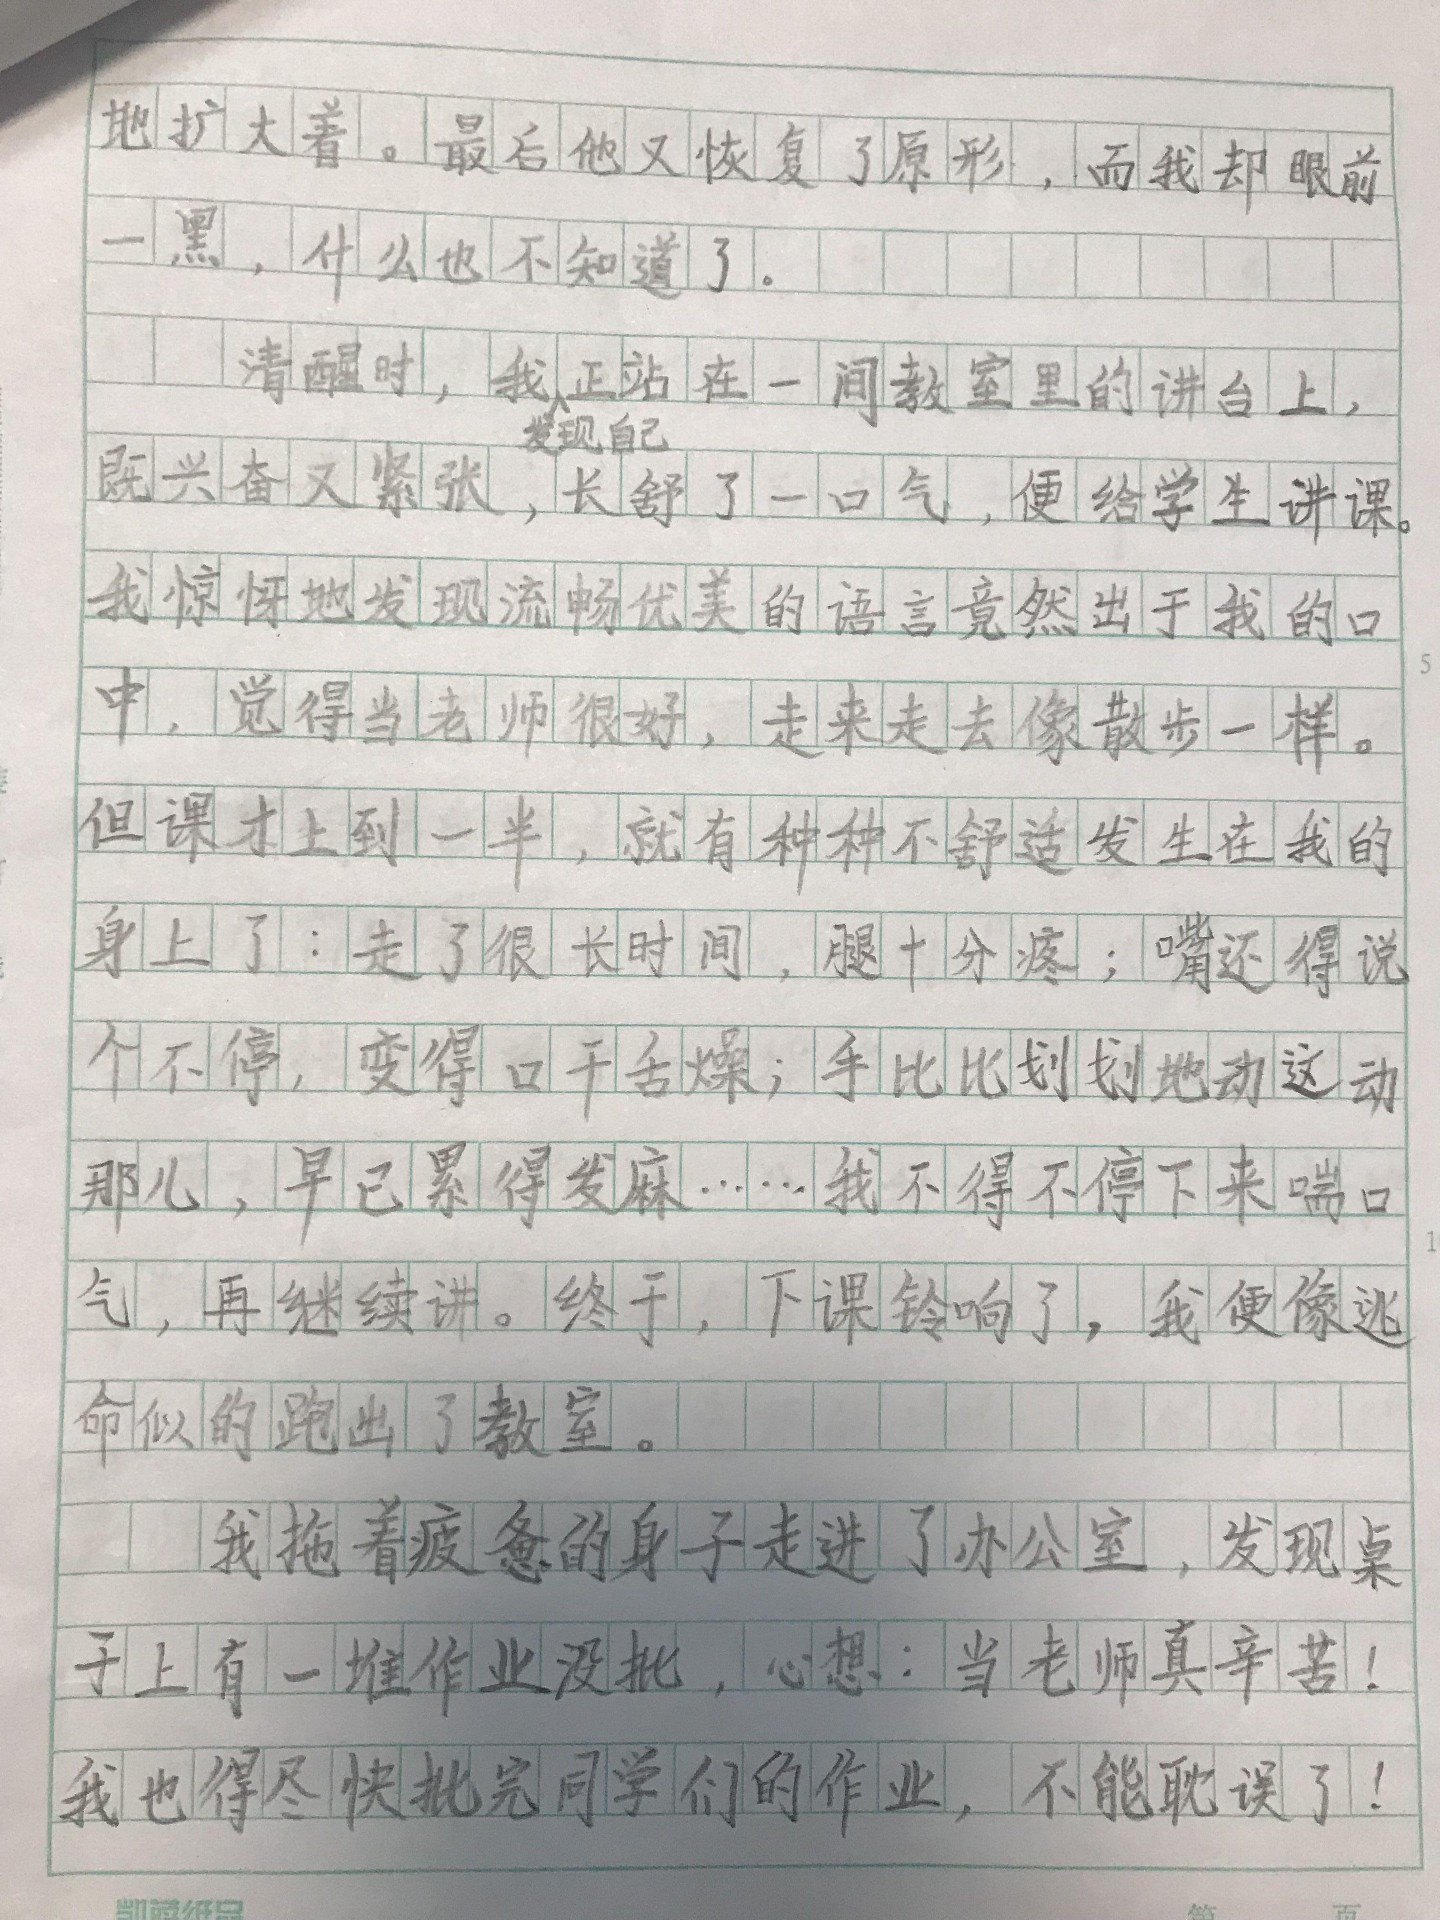 地扩大着。最后他又恢复了原形，而我却眼前
一黑，什么也不知道了。
清醒时，我正站在一间教室里的讲台上，
发现自己
既兴奋又紧张，长舒了一口气，便给学生讲课。
我惊讶地发现流畅优美的语言竟然出于我的口
中，觉得当老师很好，走来走去像散步一样。
但课才上到一半，就有种种不舒适发生在我的
身上了：走了很长时间，腿十分疼；嘴还得说
个不停，变得口干舌燥；手比比划划地动这动
那儿，早已累得发麻……我不得不停下来喘口
气，再继续讲。终于，下课铃响了，我便像逃
命似的跑出了教室。
我拖着疲惫的身子走进了办公室，发现桌
子上有一堆作业没批，心想：当老师真辛苦！
我也得尽快批完同学们的作业，不能耽误了！
5
1
凯萨纸品
第 页